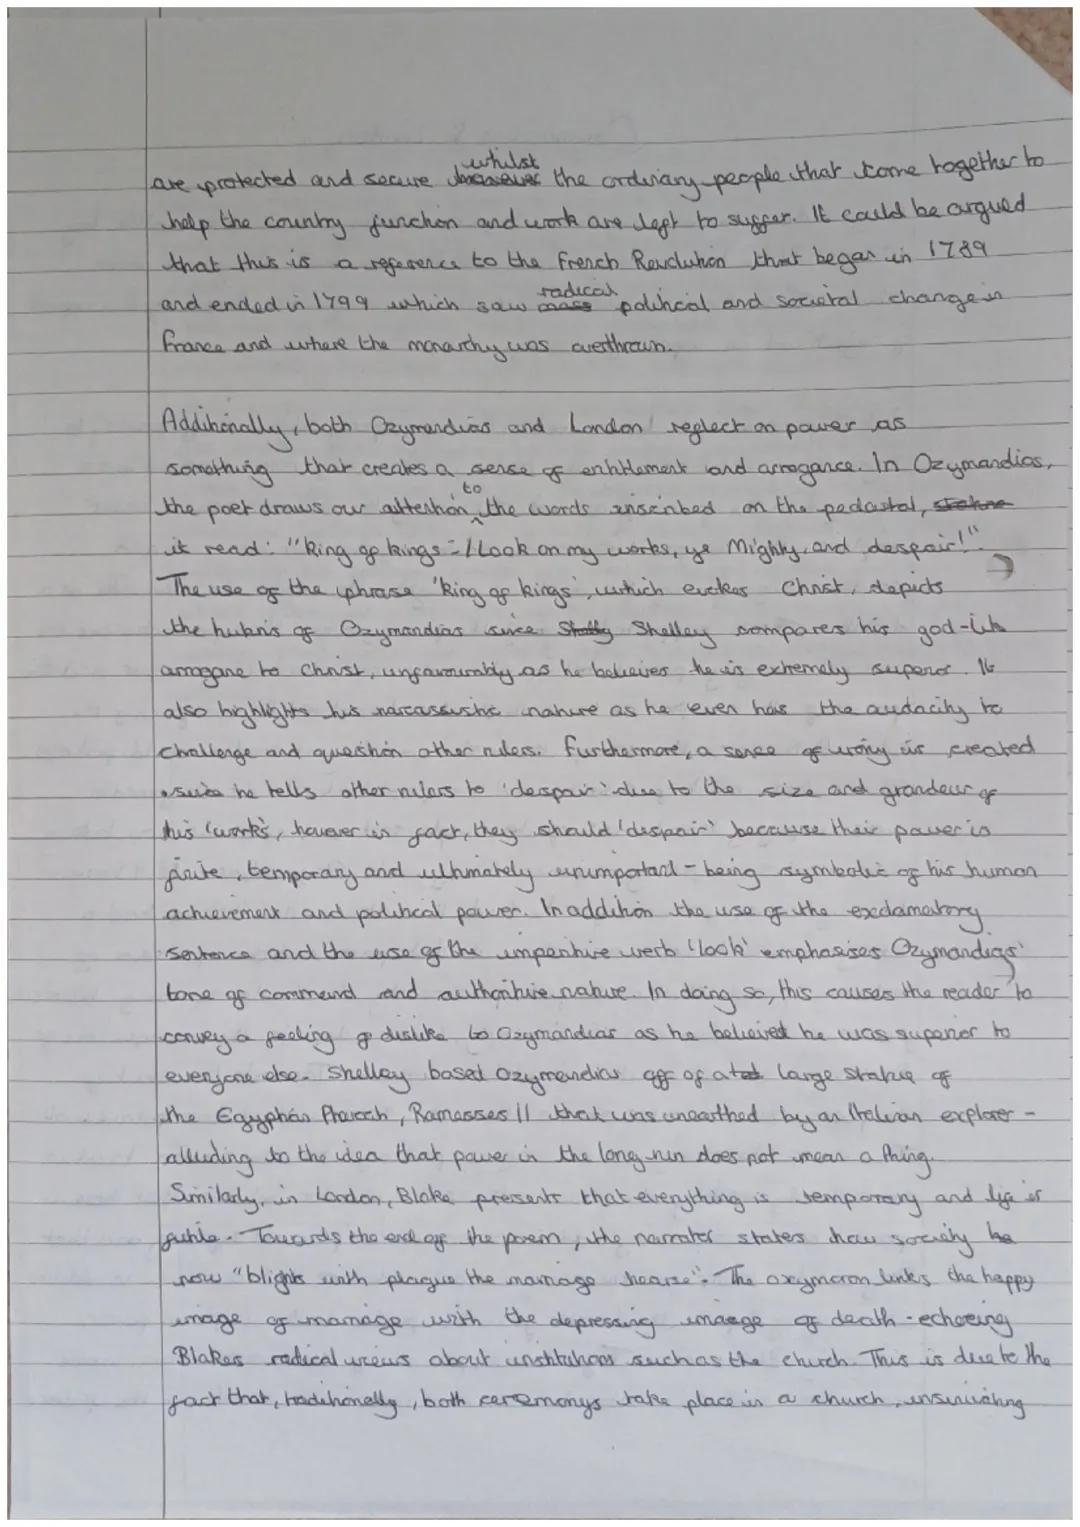 whilst
are protected and secure the ordinary people that come together to
help the country function and work are left to suffer. It could be argued
that this is a reference to the French Revolution that began in 1789
radical
and ended in 1799 which saw mass political and societal change in
France and where the monarchy was overthrown.
Additionally, both Ozymandias and London reflect on power as
something that creates a sense of entitlement and arrogance. In Ozymandias,
to
the poet draws our attention the words inscribed on the pedastal,
it read: "King of kings - / Look on my works, ye Mighty, and despair!".
The use of the phrase 'king of kings', which evokes Christ, depicts
the hubris of Ozymandias since Shelley compares his god-like
arrogane to Christ, unfavourably as he believes he is extremely superior. It
also highlights his narcassistic nature as he even has the audacity to
challenge and question other rulers. Furthermore, a sence of irony is created
since he tells other rulers to 'despair' due to the size and grandeur of
his 'works', however in fact, they should 'despair' because their power is
finite, temporary and ultimately unimportant - being symbolic of his human
achievement and political power. In addition the use of the exclamatory
sentence and the use of the imperitive verb 'look' emphasises Ozymandias'
tone of command and authoritive nature. In doing so, this causes the reader to
convey a feeling of dislike to Ozymandias as he believed he was superior to
everyone else. Shelley based Ozymandias off of a large statue of
the Egyptian Pharaoh, Ramesses II that was unearthed by an Italian explorer -
alluding to the idea that power in the long run does not mean a thing.
Similarly, in London, Blake presents that everything is temporary and life is
futile. Towards the end off the poem, the narrator states how society he
now "blights with plague the marriage hearse". The oxymoron links the happy
image of marriage with the depressing image of death - echoeing
Blakes radical views about institutions such as the church. This is due to the
fact that, traditionally, both ceremonys take place in a church, insinuating